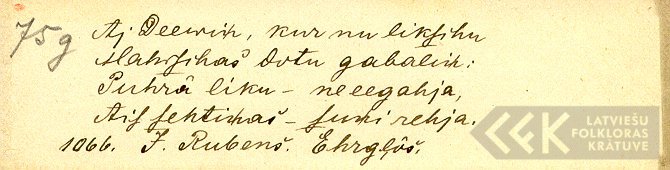 75g
Aj Deewiņ, kur nu likſchu
Mahrſiņas dotu gabaliņ:
Puhrâ liku – ne eegahja,
Aiſ ſehtiņas – ſuņi rehja.
1066. J. Rubens. Ehrgļôs.
LATVIEŠU
FOLKLORAS
KRĀTUVE